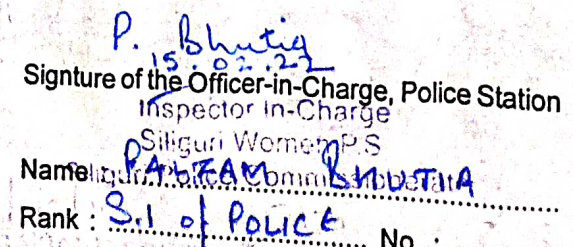 P. Bhutia
15.02.22
Signture of the Officer-in-Charge, Police Station
Inspector In-Charge
Siliguri Women P.S
Siliguri Police Commissionerate
Name : PALZAM BHUTIA
Rank : S.I of POLICE No :